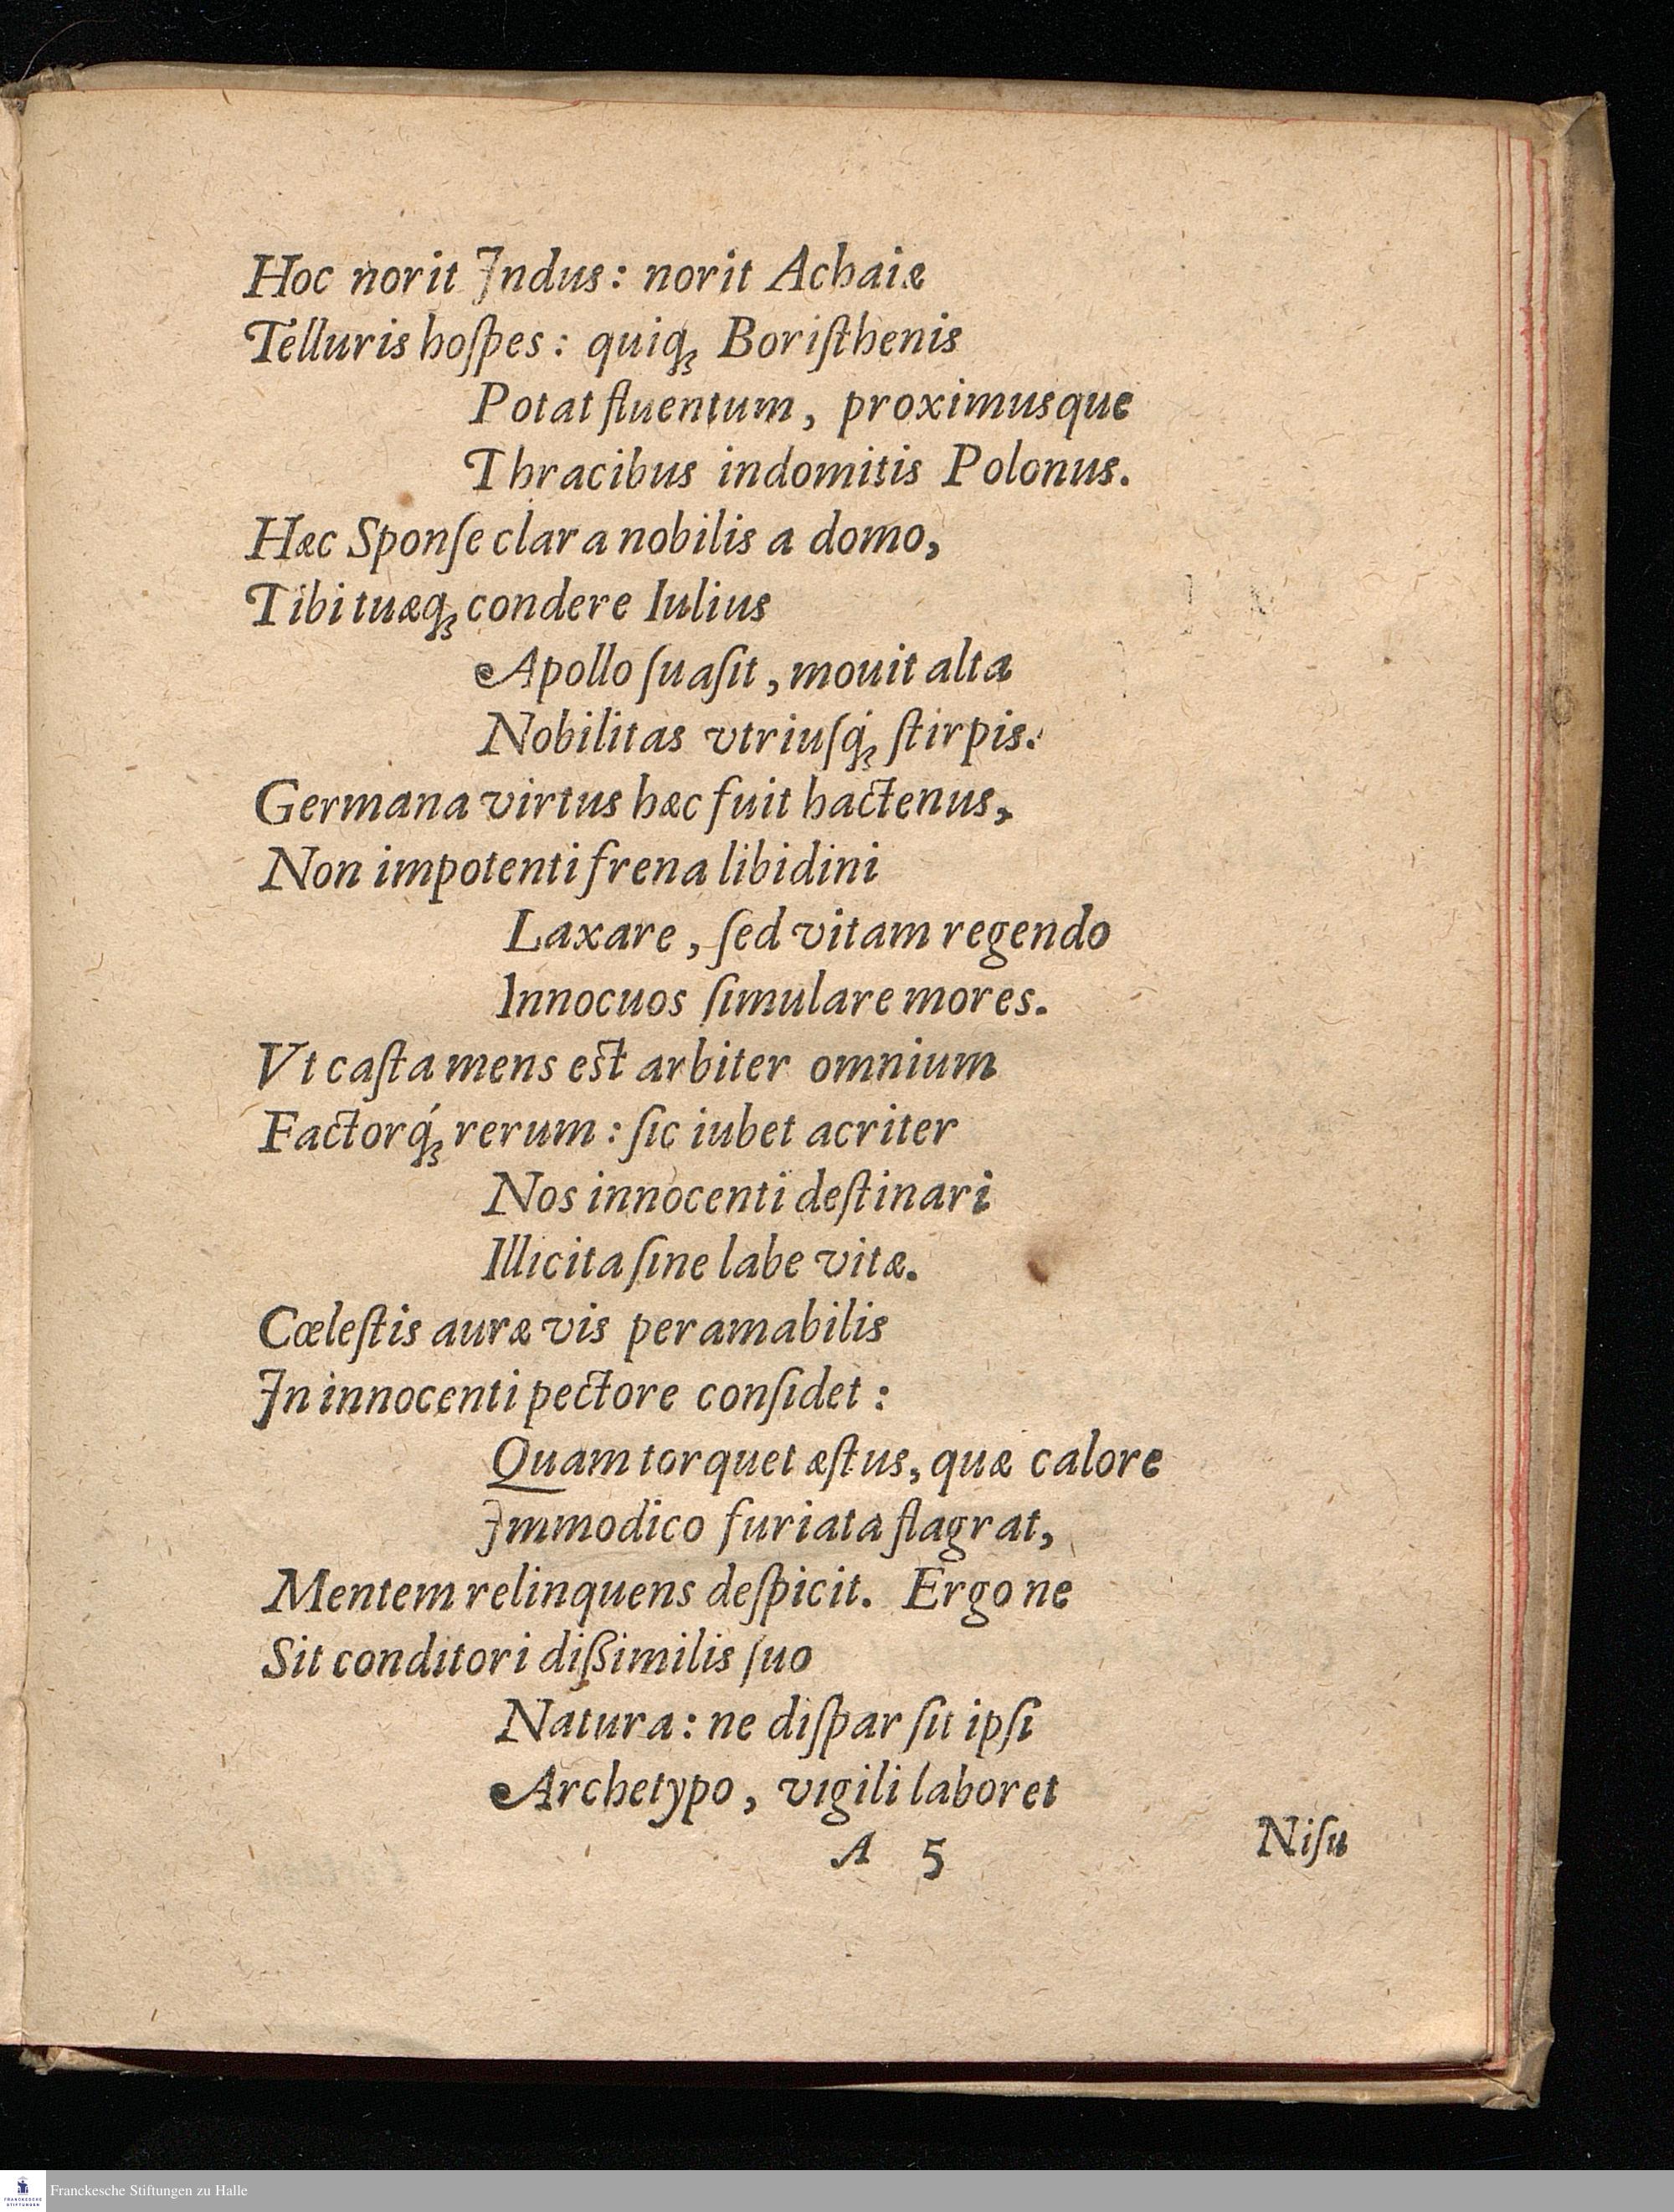 Hoc norit Indus: norit Achaiæ
Telluris hoſpes: quiq́; Boriſthenis
Potat fluentum, proximusque
Thracibus indomitis Polonus.
Hæc Sponſe clara nobilis a domo,
Tibi tuæq; condere Iulius
Apollo ſuaſit, mouit alta
Nobilitas vtriuſq́; ſtirpis.
Germana virtus hæc fuit hactenus,
Non impotenti frena libidini
Laxare, ſed vitam regendo
Innocuos ſimulare mores.
Vt caſta mens est arbiter omnium
Factorq́; rerum: ſic iubet acriter
Nos innocenti deſtinari
Illicita ſine labe vitæ.
Cœleſtis auræ vis peramabilis
In innocenti pectore conſidet:
Quam torquet æſtus, quæ calore
Immodico furiata flagrat,
Mentem relinquens deſpicit. Ergo ne
Sit conditori dißimilis ſuo
Natura: ne diſpar ſit ipſi
Archetypo, vigili laboret
A 5
Niſu
Franckesche Stiftungen zu Halle
FRANCKESCHE
STIFTUNGEN